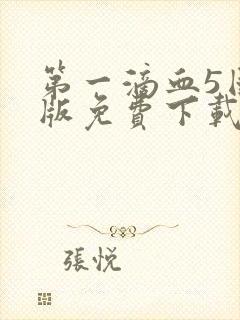 第一滴血5国
版免費下載
張悅